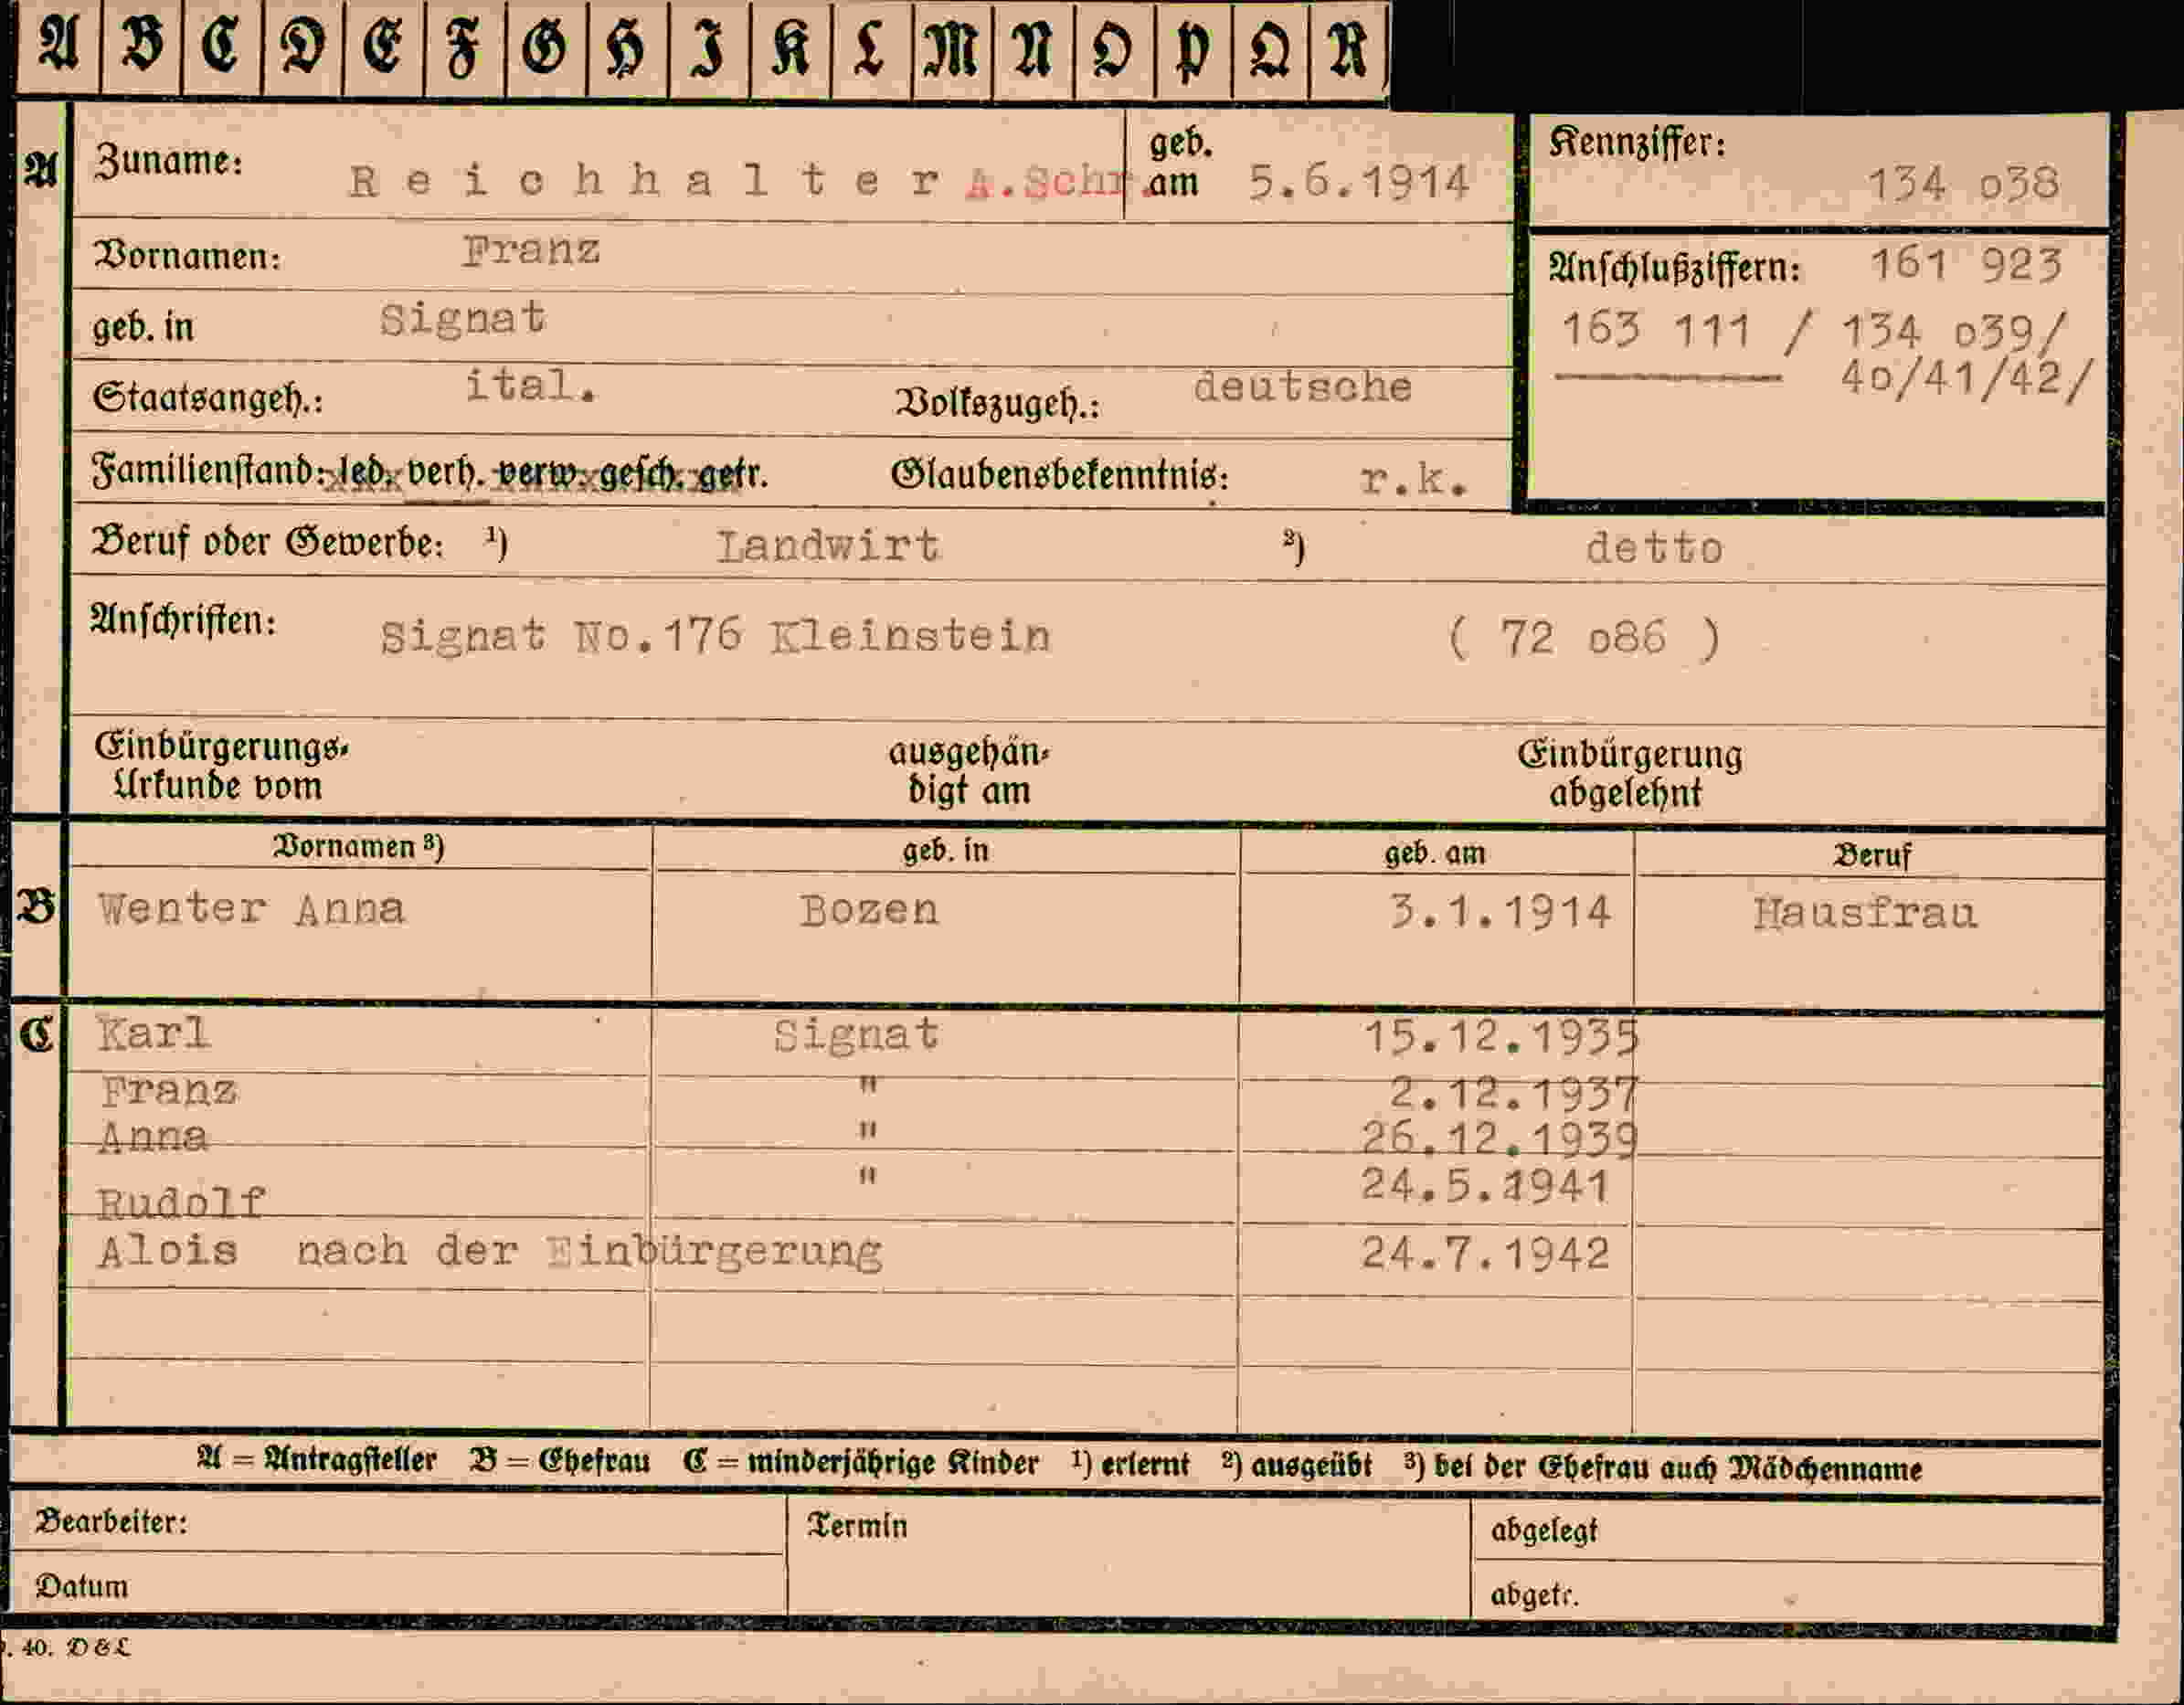 A B C D E F G H I K L M N O P Q R
A Zuname: Reichhalter A.Schr. geb. am 5.6.1914
Kennziffer: 134 o38
Vornamen: Franz
Anschlußziffern: 161 923
163 111 / 134 o39/
40/41/42/
geb. in Signat
Staatsangeh.: ital. Volkszugeh.: deutsche
Familienstand: led. verh. verw. gesch. getr. Glaubensbekenntnis: r.k.
Beruf oder Gewerbe: ¹) Landwirt ²) detto
Anschriften: Signat No.176 Kleinstein ( 72 o86 )
Einbürgerungs- ausgehän- Einbürgerung
Urkunde vom digt am abgelehnt
Vornamen ³) geb. in geb. am Beruf
B Wenter Anna Bozen 3.1.1914 Hausfrau
C Karl Signat 15.12.1935
Franz " 2.12.1937
Anna " 26.12.1939
Rudolf " 24.5.1941
Alois nach der Einbürgerung 24.7.1942
A = Antragsteller B = Ehefrau C = minderjährige Kinder ¹) erlernt ²) ausgeübt ³) bei der Ehefrau auch Mädchenname
Bearbeiter: Termin abgelegt
Datum abgetr.
. 40. D & L